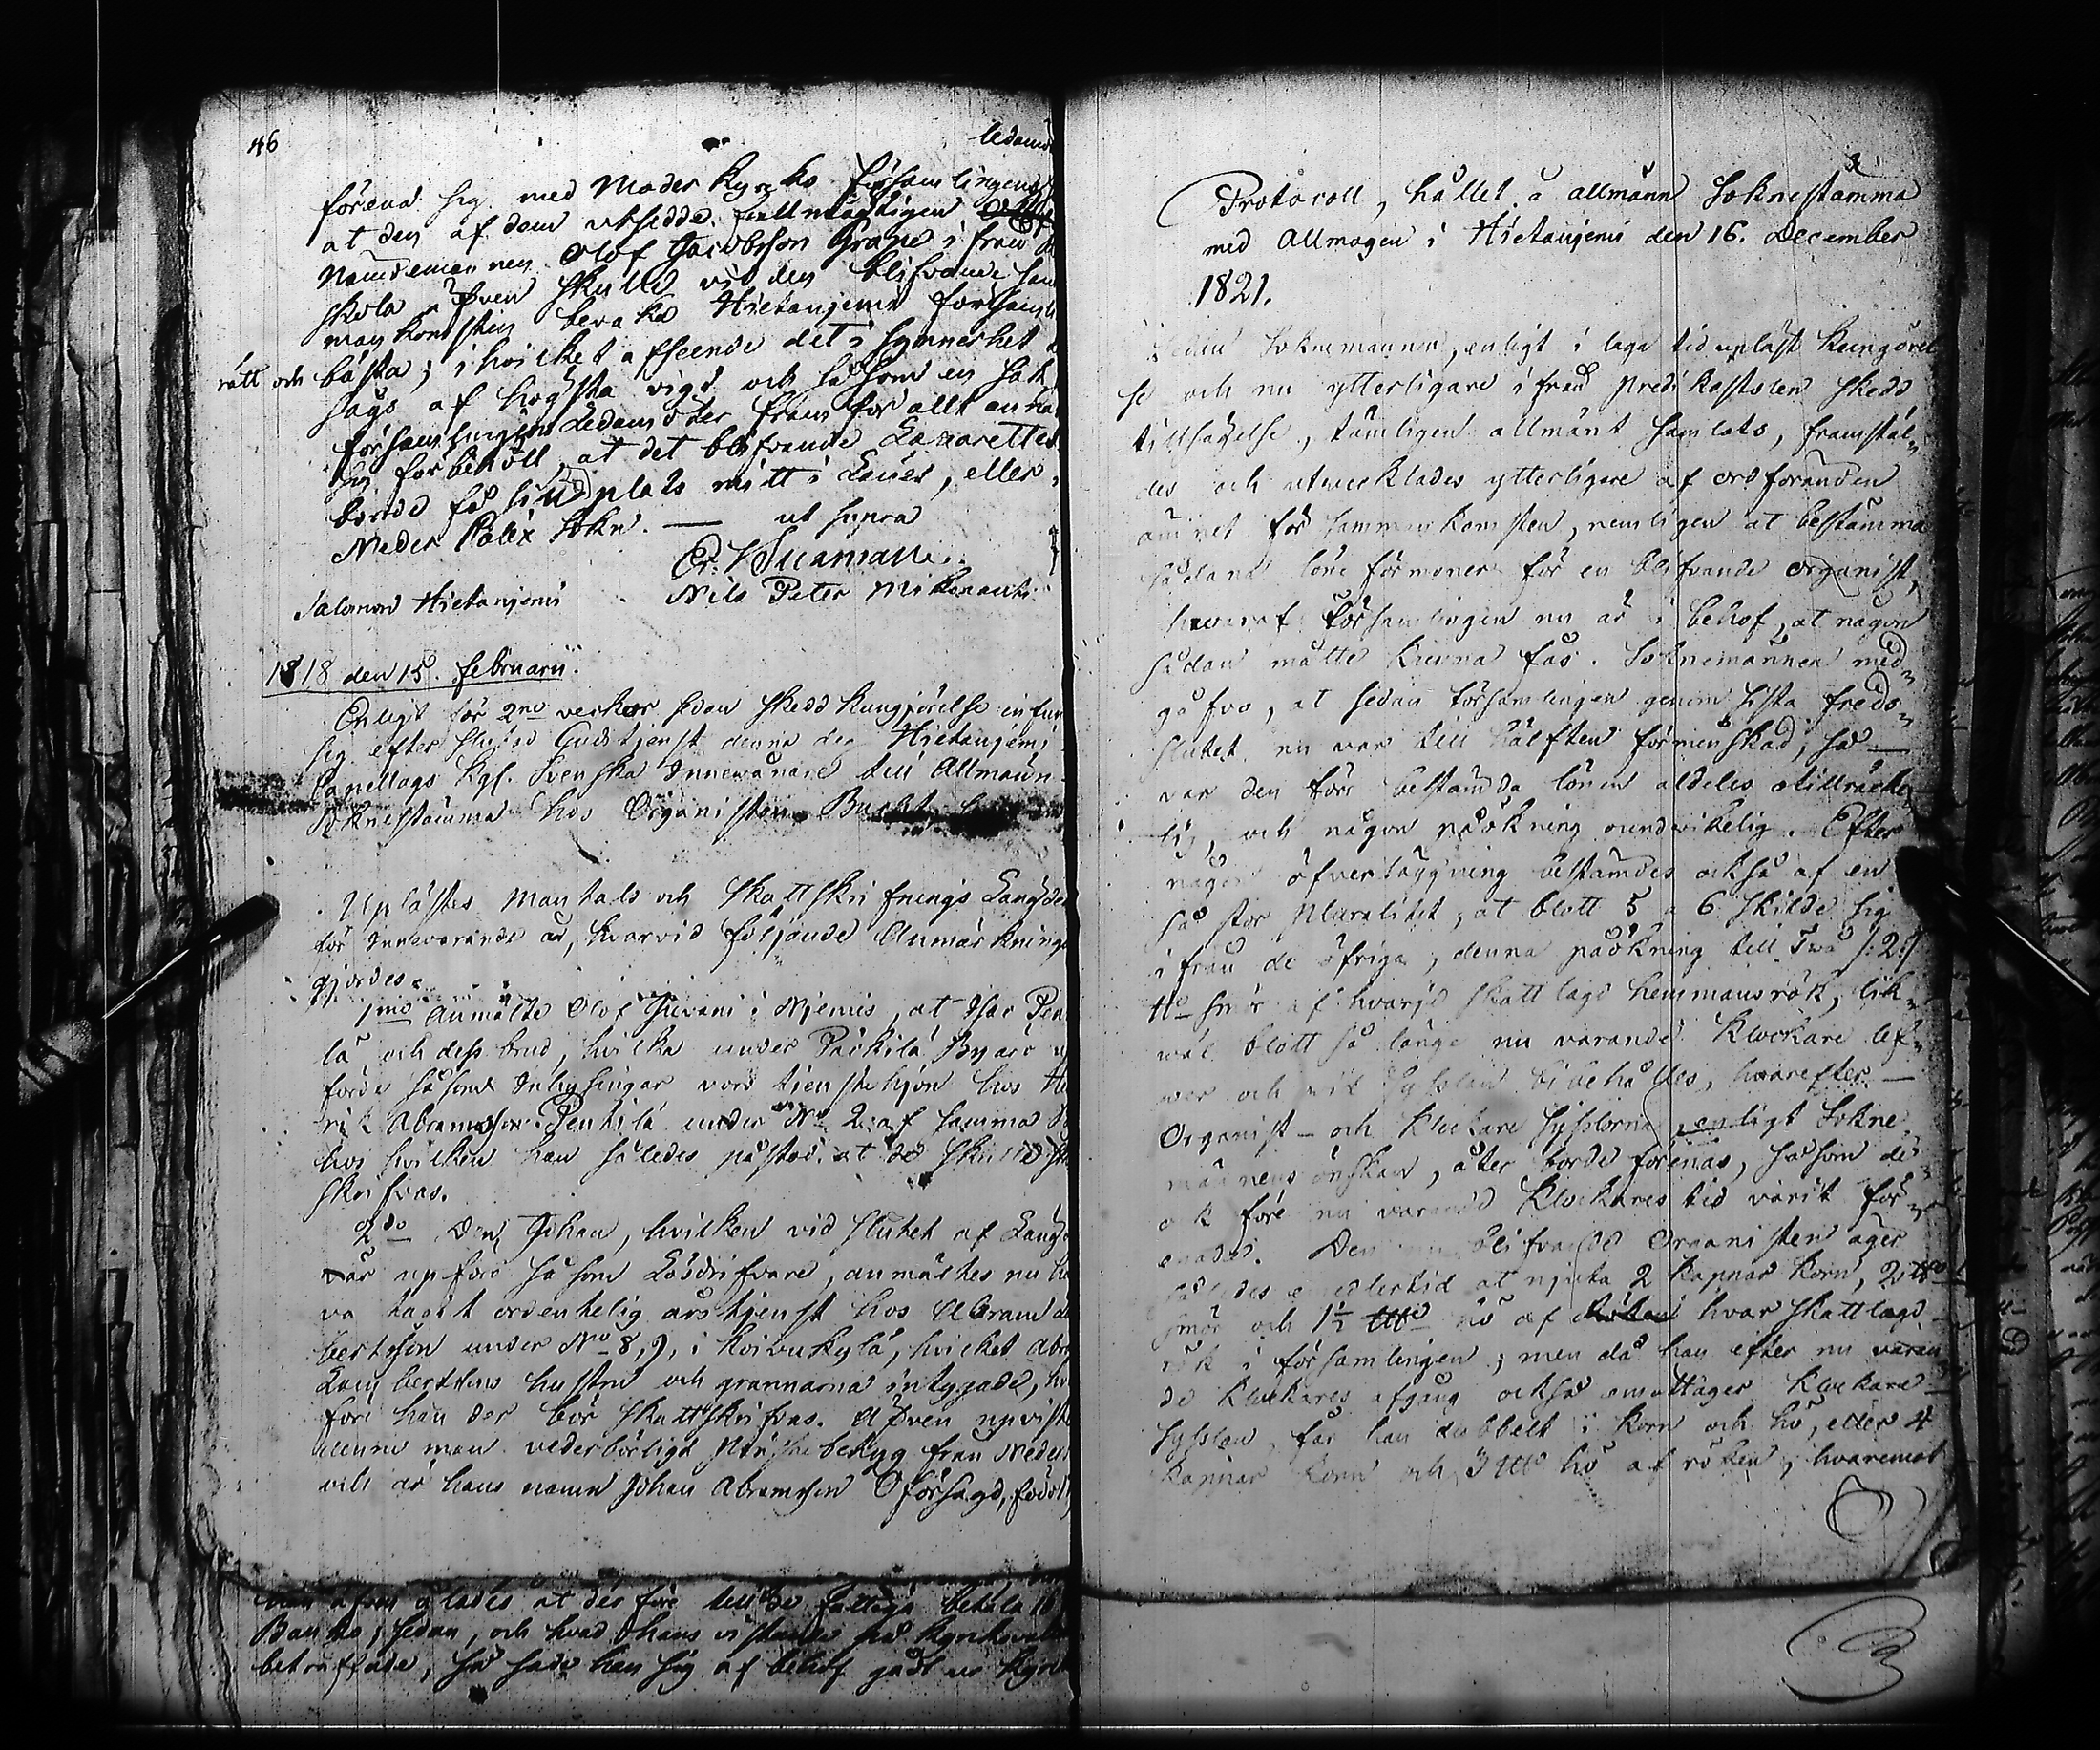 46
ledamö
förena sig med Moder Kyrko församlingens
at den af dem utsedde fullmägtigen
Nämdemannen Olof Jacobsson Grape i från
skola äfven skulle vid den blifvande sam
mankomsten bevaka Hietaniemi församl
rätt och bästa; i hvilket afseende det i synnerhet
sågs af högsta vigt och såsom en sak
församlingens Ledamöter fram för allt annat
sig förbehöll, at det blifvande Lazarettet
borde få sin plats mitt i Länet, eller
Neder Calix Sokn. — ut supra
Er.
Salomon Hietaniemi Nils Peter Mikonanti
1818 den 15. februarii.
Enligt för 2ne veckor sedan skedd kungjörelse infunno
sig efter slutad Gudstjenst denna dag Hietaniemi
Capellags Kgl. Svenska Innevånare till Allmän
Soknestämma hos Organisten
Uplästes Mantals och Skattskrifnings Längden
för Innevarande år, hvarvid följande Anmärkninga
gjordes.
1mo Anmälte Olof i Niemis, at Isac Pen
lä och dess brud, hvilka under Päckilä By äro u
förde såsom Inhysingar voro tjenstehjon hos He
rik Abramsson Pentilä under No 2 af samma
hos hvilken han således påstod at de skulle
skrifvas.
2do Den Johan, hvilken vid slutet af Längd
är upförd såsom Lösdrifvare, anmältes nu ha
va tagit ordentelig årstjenst hos Abram
bertsson under No 8, 9, i Koivukylä, hvilket Abr
Lambertssons hustru och grannarna intygade, hv
före han der bör skattskrifvas. Äfven upviste
denne man vederbörligt betyg från Neder
och är hans namn Johan Abramsson Oförsagd, född
han äfven ålades at derföre till de fattiga betala 16
Banko; sedan, och hvad hans vistande på Kyrkovallen
beträffade, så sade han sig af behof gådt ur Kyrk
Protocoll, hållet å allmänn Soknestämma
med Allmogen i Hietaniemi den 16. December
1821.
Sedan Soknemännen, enligt i laga tid upläst kungörel
se och nu ytterligare ifrån predikostolen skedd
tillsägelse, tämligen allmänt samlats, framstäl-
des och utvecklades ytterligare af ordföranden
ämnet för sammankomsten, nemligen at bestämma
sådana löne förmoner för en blifvande organist,
hvaraf Församlingen nu är i behof, at någon
sådan måtte kunna fås. Soknemännen med-
gåfvo, at sedan församlingen genom sista freds-
slutet nu var till hälften förminskad, så —
var den förr bestämda lönen aldeles otillräcke-
lig, och någon påökning oundvikelig. Efter
någon öfverläggning bestämdes också af en
så stor pluralitet, at blott 5 a 6 skilde sig
ifrån de öfriga, denna påökning till Två /: 2 :/
smör af hvarje skattlagd hemmansrök, lik-
wäl blott så länge nu varande Klockare lef-
wer och vid sysslan bibehålles, hvarefter —
Organist- och Klockare sysslorna, enligt Sokne
männens önskan, åter borde förenas, såsom de
ock före nu varande Klockares tid varit för-
enade. Den nu blifvande Organisten äger
således emedlertid at njuta 2 kappar Korn, 2
smör och 1½ hö af hvar skattlagd
rök i församlingen; men då han efter nu varan
de Klockares afgång också emottager Klockare
sysslan, får han dubbelt i Korn och hö, eller 4
kappar Korn och 3 hö af röken, hvaremot